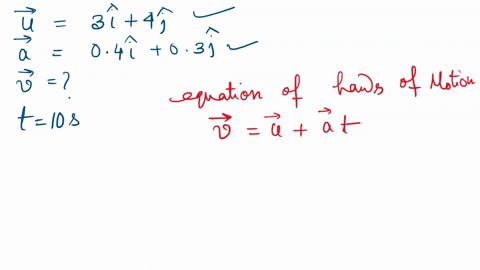 u⃗ = 3î + 4ĵ ✓
a⃗ = 0.4î + 0.3ĵ ✓
v⃗ = ?
t = 10s
equation of haws of Motion
v⃗ = u⃗ + a⃗ t